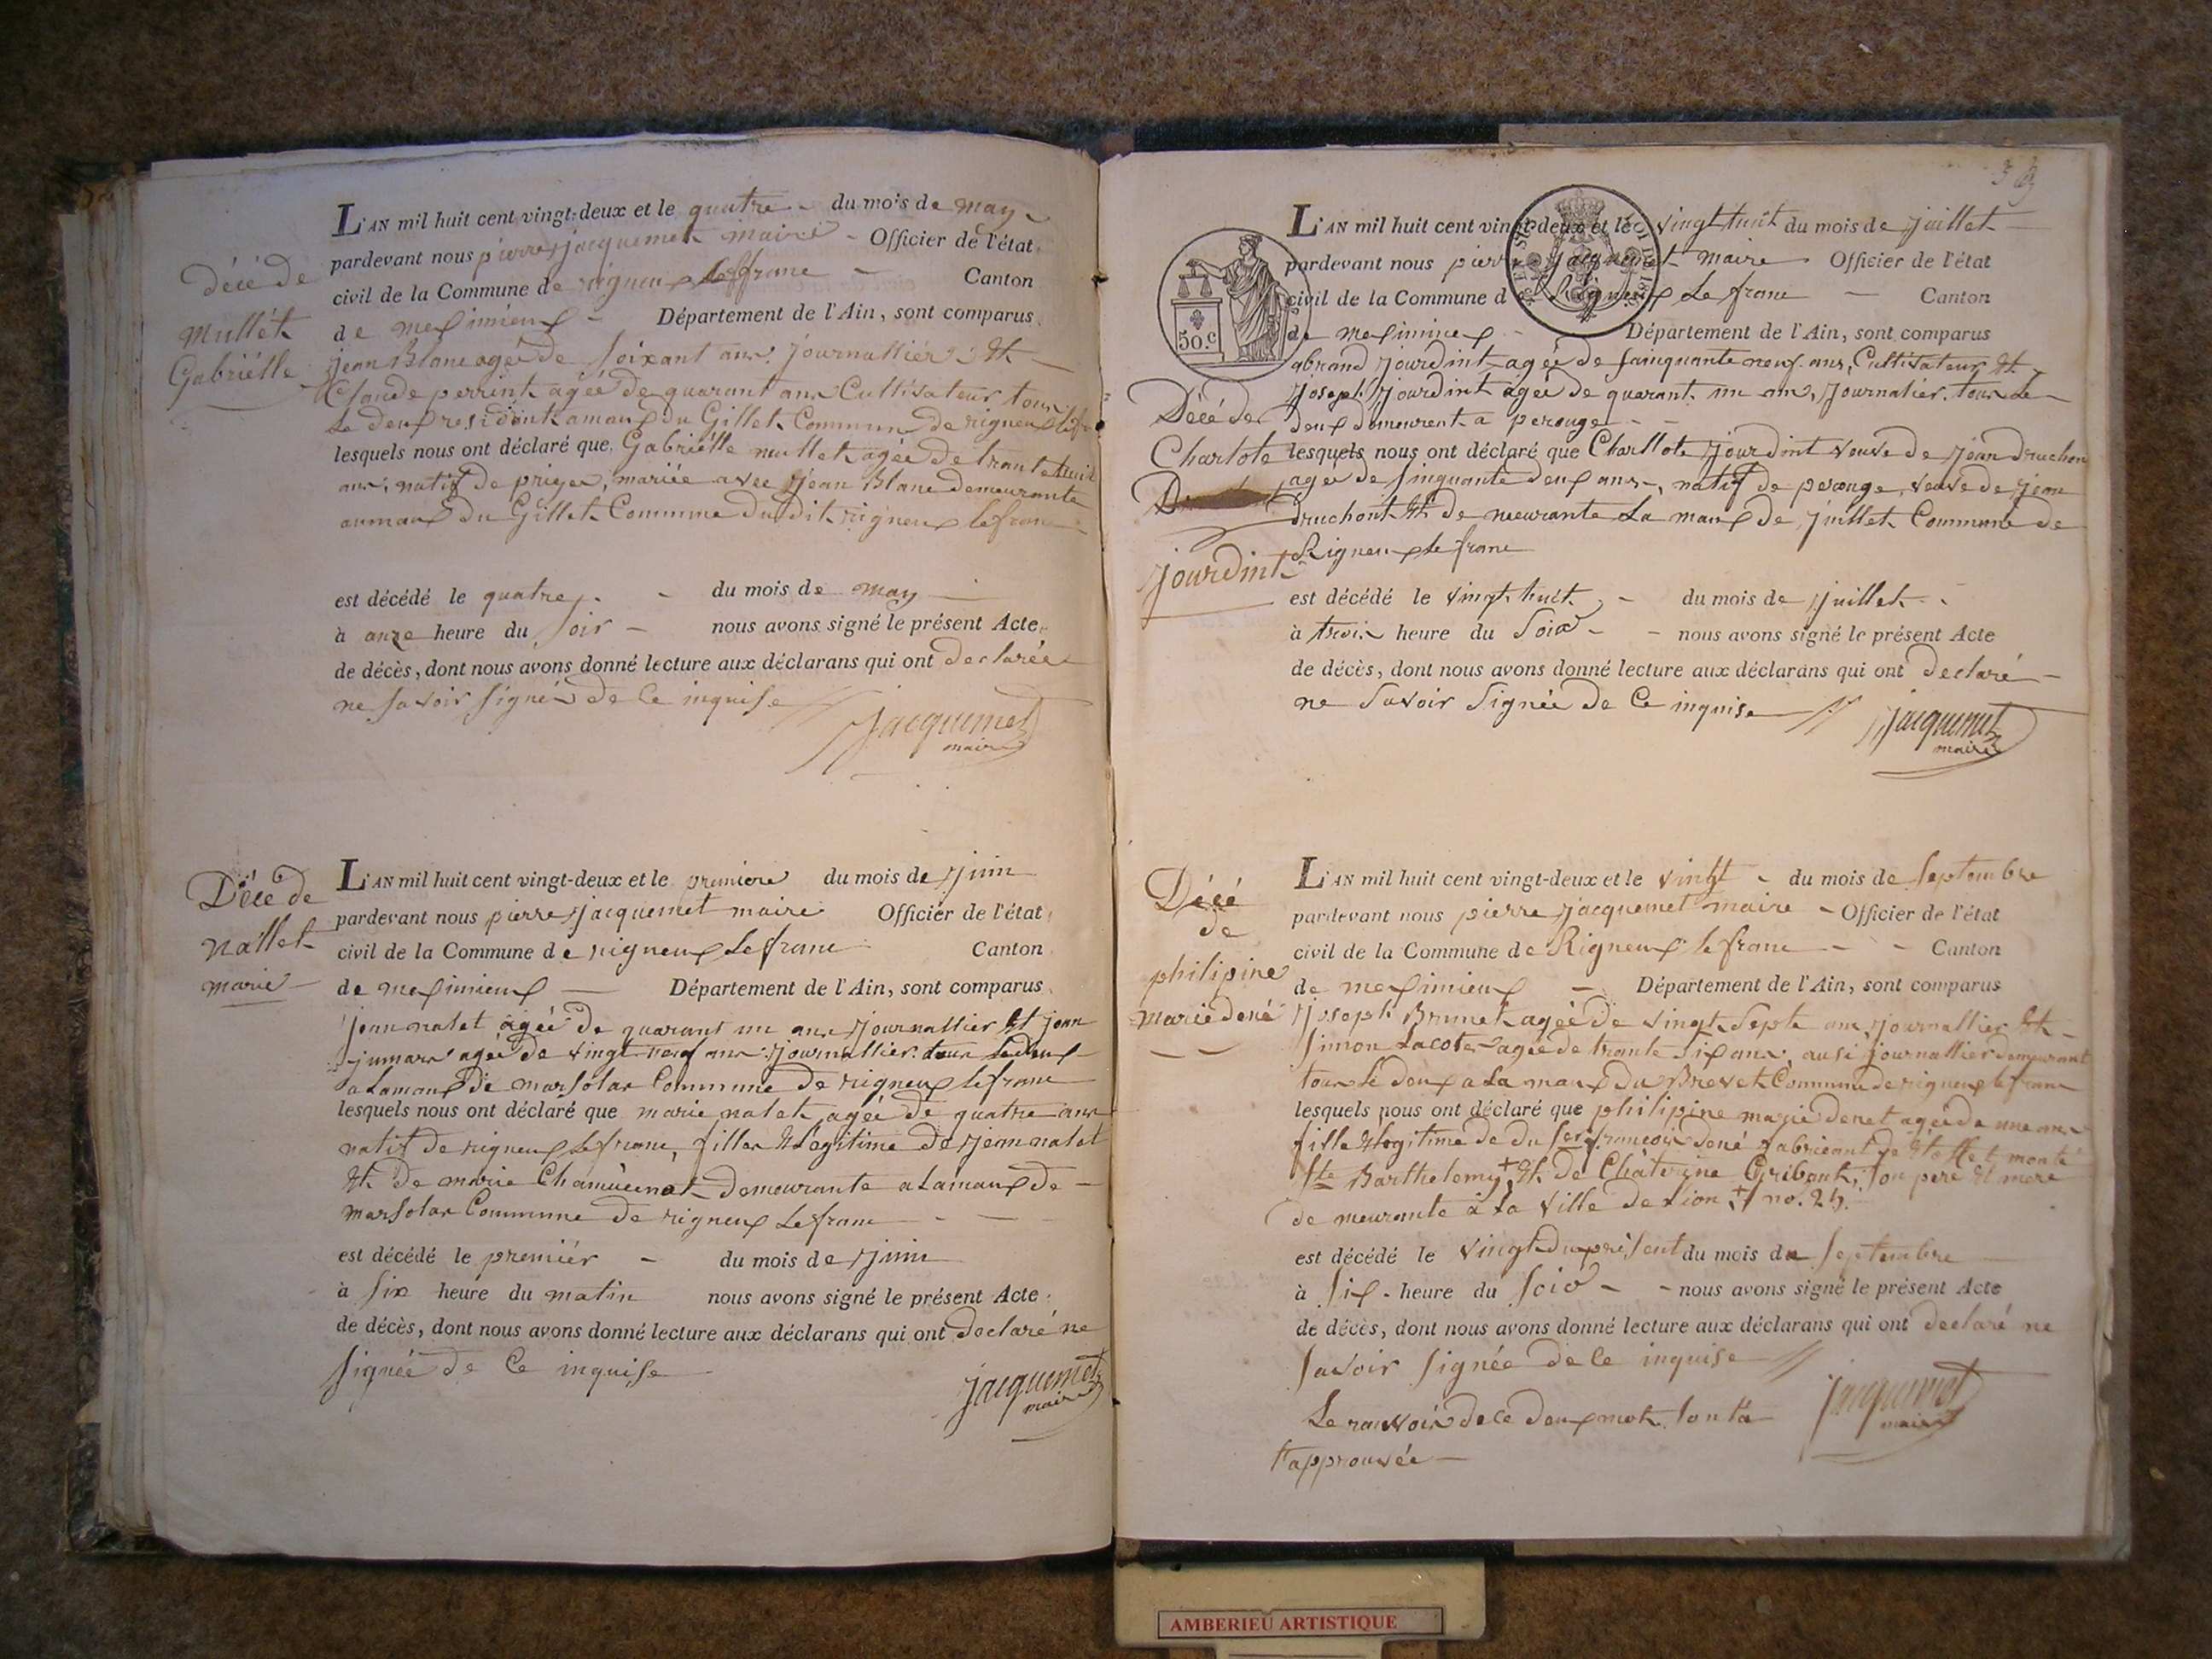 Décé de
Mullét
Gabriélle
L'AN mil huit cent vingt-deux et le quatre du mois de may
pardevant nous pierre jacquemet maire Officier de l'état
civil de la Commune de rigneux Le franc Canton
de meximieux Département de l'Ain, sont comparus
jean Blanc agée de soixant ans journallier Et
Claude perrint agée de quarant ans Cultivateur tous
Le deux residant amaux du Gillet Commune de rigneux lefr
lesquels nous ont déclaré que Gabriélle mullet agée de trante huit
ans, natif de priges, mariée avec jean Blanc demeurante
aumaux du Gillet Commune du dit rigneux lefranc
est décédé le quatre du mois de may
à onze heure du soir nous avons signé le présent Acte
de décès, dont nous avons donné lecture aux déclarans qui ont declarée
ne savoir signée de Ce inquise
jacquemet
maire
Décé de
nallet
marie
L'AN mil huit cent vingt-deux et le premiere du mois de juin
pardevant nous pierre jacquemet maire Officier de l'état
civil de la Commune de rigneux Lefranc Canton
de meximieux Département de l'Ain, sont comparus
jean nalet agée de quarant un ans journallier Et jean
jumard agée de vingt neuf ans journallier tous Ledeux
a Lamaux de marsolas Commune de rigneux lefranc
lesquels nous ont déclaré que marie nalet agée de quatre ans
natif de rigneux Lefranc, filles Légitime de jean nalet
Et de marie demourante a Lamaux de
marsolas Commune de rigneux Lefranc
est décédé le premiér du mois de juin
à six heure du matin nous avons signé le présent Acte
de décès, dont nous avons donné lecture aux déclarans qui ont declaré ne
signée de Ce inquise
jacquemet
maire
L'AN mil huit cent vingt-deux et le vingt huit du mois de juillet
pardevant nous pierre jacquemet maire Officier de l'état
civil de la Commune de Rigneux Le franc Canton
50.c
de meximieux Département de l'Ain, sont comparus
jourdint agée de sainquante neuf ans, Cultivateur Et
Joseph jourdint agée de quarant un ans, journalier tous Le
deux demeurent a perouge
Décé de
Charlote
jourdint
lesquels nous ont déclaré que Charllote jourdint veuve de jean druchon
agee de sinquante deux ans, natif de perouge, veuve de jean
druchont Et de meurante La maux de juillet Commune de
Rigneux le franc
est décédé le vingt huit du mois de juillet
à trois heure du soir nous avons signé le présent Acte
de décès, dont nous avons donné lecture aux déclarans qui ont declaré
ne savoir signée de Ce inquise
jacquemet
maire
Décé
de
philipine
marie dené
L'AN mil huit cent vingt-deux et le vingt du mois de septembre
pardevant nous pierre jacquemet maire Officier de l'état
civil de la Commune de Rigneux le franc Canton
de meximieux Département de l'Ain, sont comparus
joseph Brunet agée de vingt septe ans journallier Et
simon Lacoste agée de trante six ans, ausi journallier demeurant
tous le deux a La maux du Brevet Commune de rigneux le franc
lesquels nous ont déclaré que philipine marie denet agée de une ans
fille Légitime de du ser françois dené fabricant de Etoffet monté
Ste Barthelemy + Et de Chaterine Gribont, son pere Et mere
de meurante à La ville de Lion + no. 25.
est décédé le vingt du présent du mois de septembre
à six heure du soir nous avons signé le présent Acte
de décès, dont nous avons donné lecture aux déclarans qui ont declaré ne
savoir signée de Ce inquise
Le ranvoir de ce deux mot sont
approuvée
jacquemet
maire
AMBERIEU ARTISTIQUE